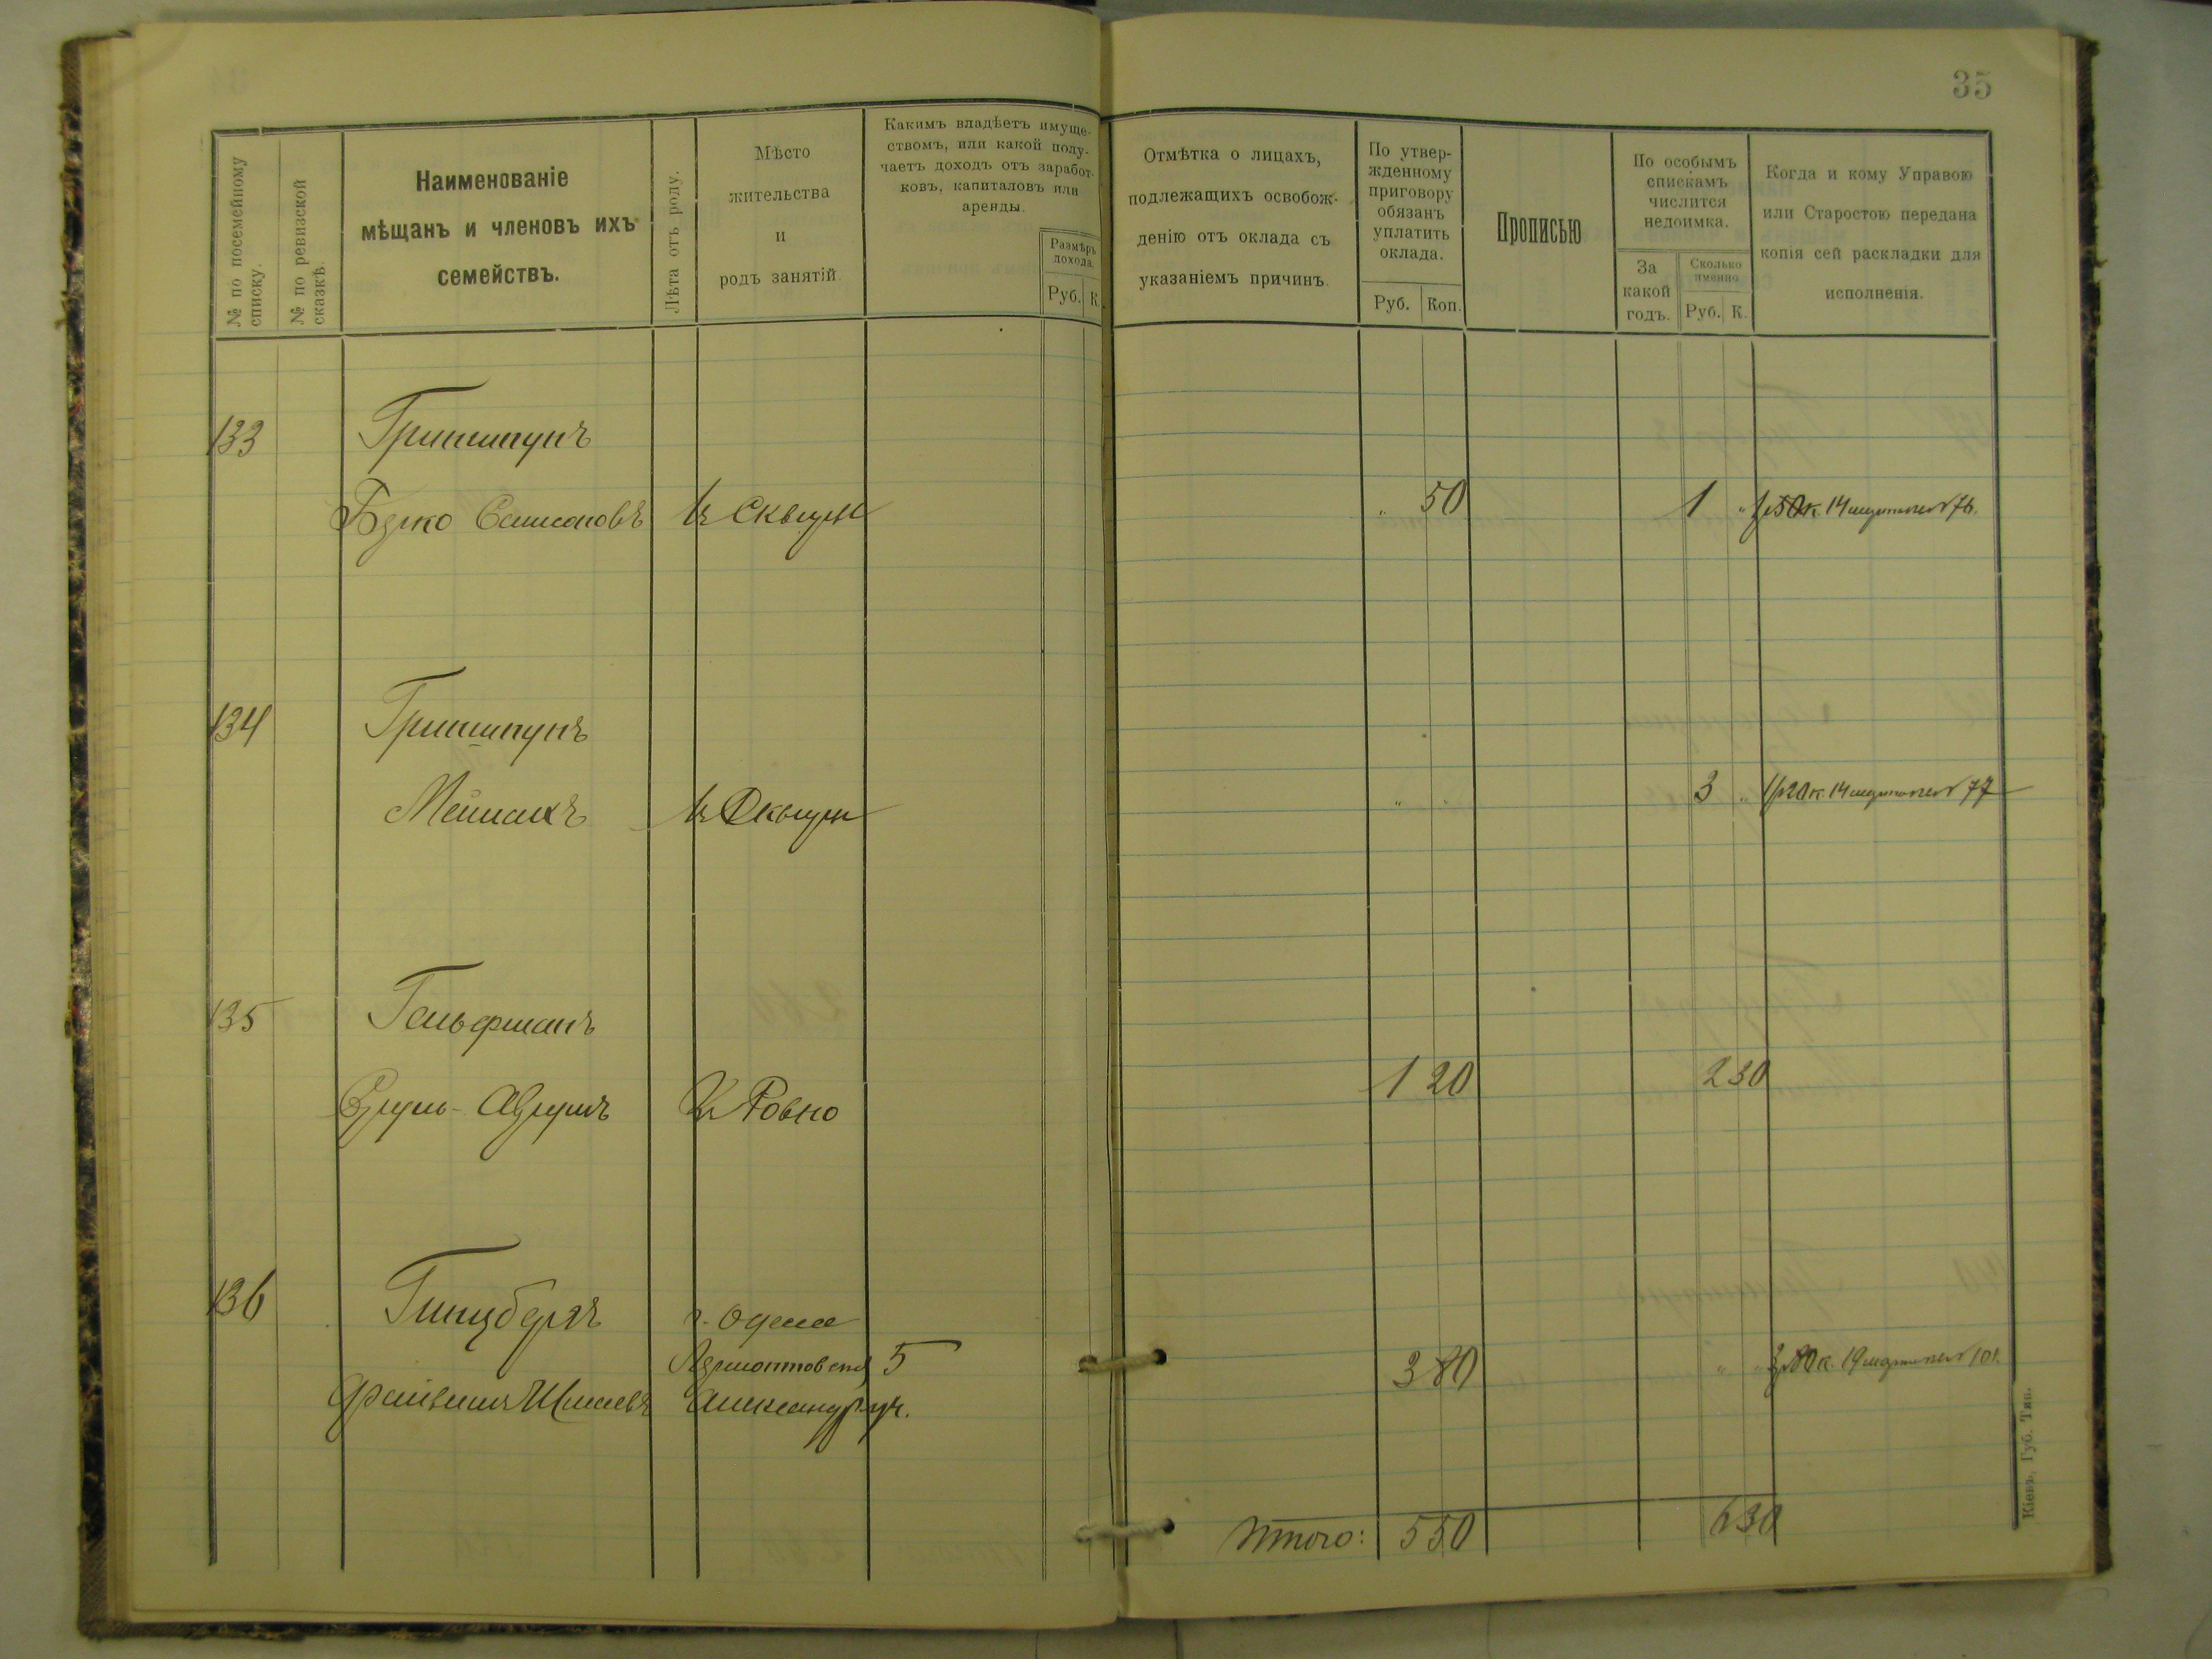 35
№ по посемейному списку.
№ по ревизской сказкѣ.
Наименованіе
мѣщанъ и членовъ ихъ
семействъ.
Лѣта отъ роду.
Мѣсто
жительства
и
родъ занятій.
Какимъ владѣетъ имуще-
ствомъ, или какой полу-
чаетъ доходъ отъ заработ-
ковъ, капиталовъ или
аренды.
Размѣръ
дохода.
Руб. К.
Отмѣтка о лицахъ,
подлежащихъ освобож-
денію отъ оклада съ
указаніемъ причинъ.
По утвер-
жденному
приговору
обязанъ
уплатить
оклада.
Руб. Коп.
Прописью
По особымъ
спискамъ
числится
недоимка.
За
какой
годъ.
Сколько
именно
Руб. К.
Когда и кому Управою
или Старостою передана
копія сей раскладки для
исполненія.
133 Гришпунъ
Берко Самсоновъ въ Сквирѣ " 50 1 " 1р50к. 14 марта 76.
134 Гришпунъ
въ Сквирѣ " " 3 " 1р20к. 14 марта 77
135 Гельфманъ
Ровно 1 20 2 30
136 Гинцбергъ г. Одесса
Лермонтовск 5
Александр. уч. 3 80 " " 3р80к. 19 марта 101.
Итого: 5 50 6 30
Кіевъ, Губ. Тип.